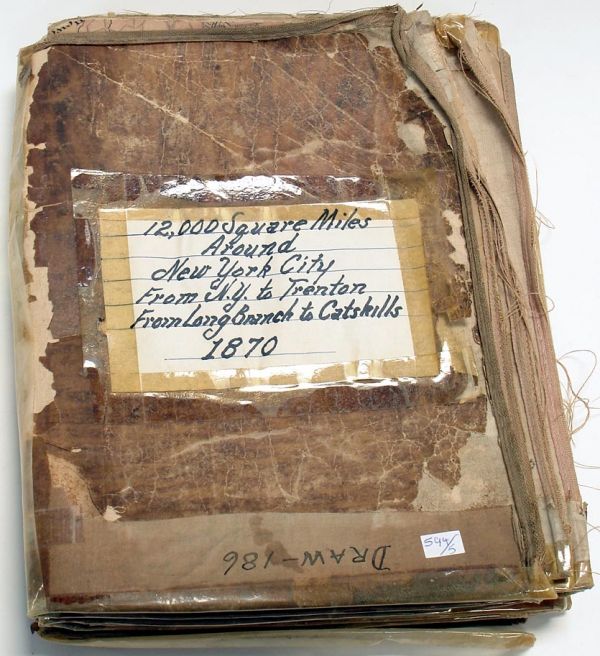 12,000 Square Miles
Around
New York City
From N.Y. to Trenton
From Long Branch to Catskills
1870
544/5
DRAW-186